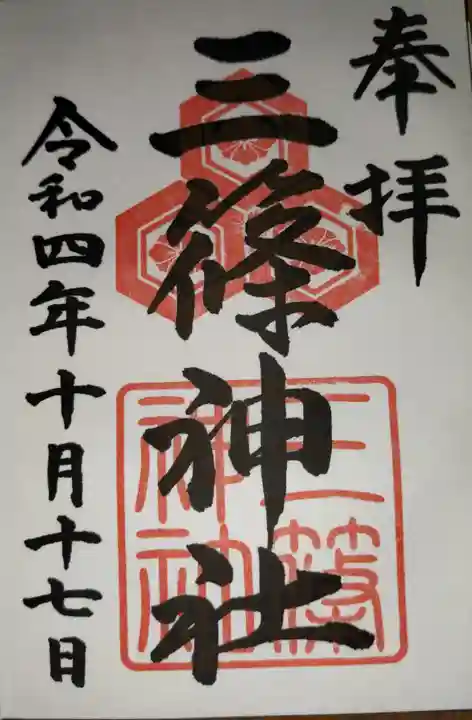 奉拝
三篠神社
三篠
神社
令和四年十月十七日